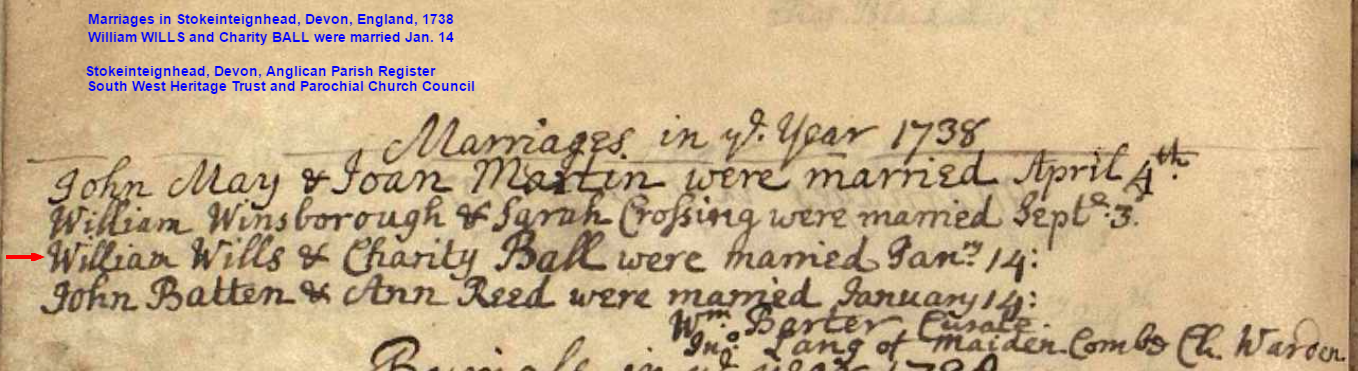 Marriages in Stokeinteignhead, Devon, England, 1738
William WILLS and Charity BALL were married Jan. 14
Stokeinteignhead, Devon, Anglican Parish Register
South West Heritage Trust and Parochial Church Council
Marriages in yᵉ. Year 1738
John May & Joan Martin were married April 4ᵗʰ.
William Winsborough & Sarah Croſsing were married Septᵉ. 3.
William Wills & Charity Ball were married Janʳʸ 14:
John Batten & Ann Reed were married January 14:
Wᵐ Barter, Curate.
Jnᵒ. Lang of Maiden-Combe Ch. Warden.
Burials in yᵉ year